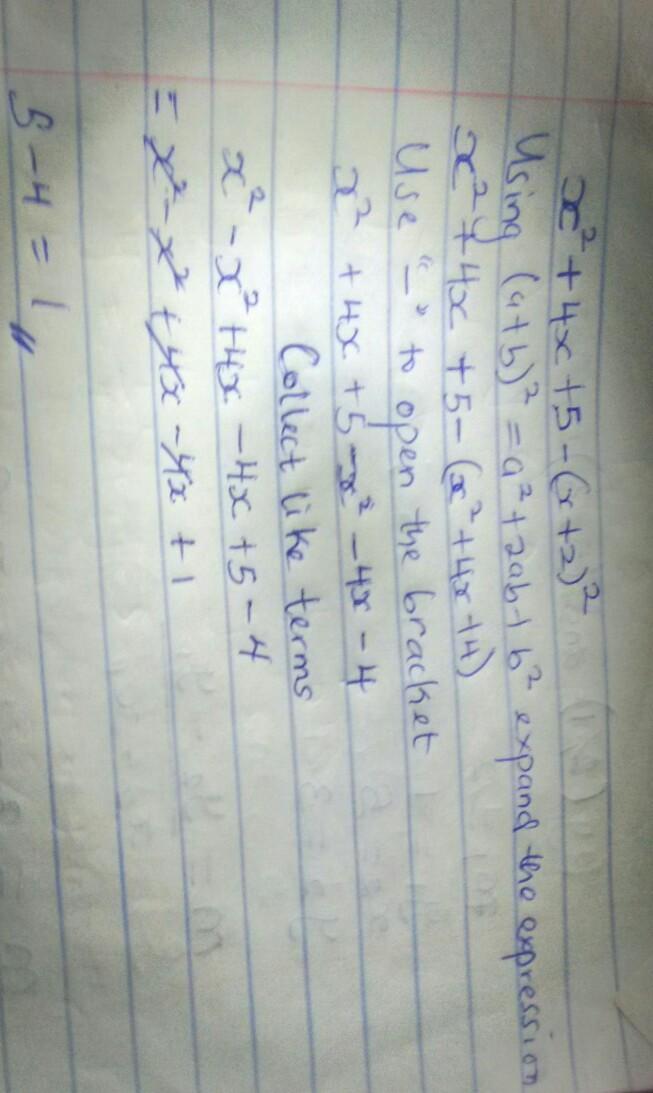 x² + 4x + 5 - (x+2)²
Using (a+b)² = a² + 2ab + b² expand the expression
x² + 4x + 5 - (x² + 4x + 4)
Use "-" to open the bracket
x² + 4x + 5 - x² - 4x - 4
Collect like terms
x² - x² + 4x - 4x + 5 - 4
= x² - x² + 4x - 4x + 1
5 - 4 = 1 "